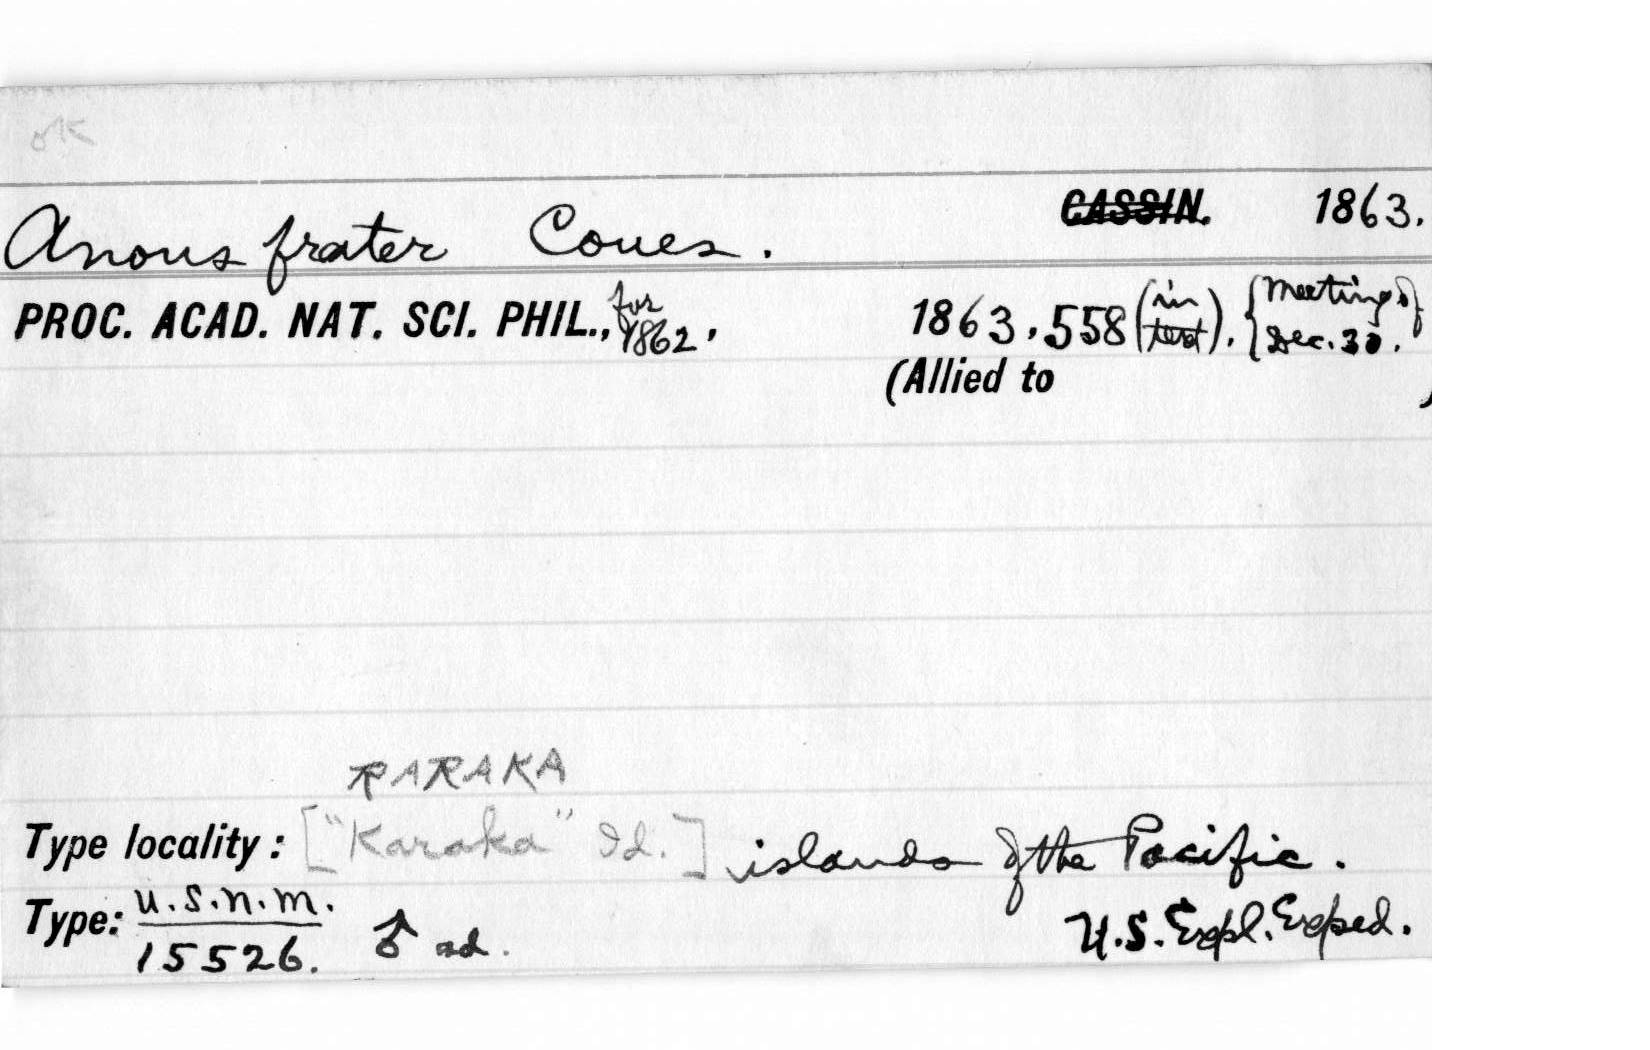 OK
CASSIN. 1863.
Anous frater Coues.
PROC. ACAD. NAT. SCI. PHIL., for 1862, 1863, 558 (in text). {Meeting of Dec. 30.
(Allied to )
RARAKA
Type locality: ["Karaka" Id.] islands of the Pacific.
Type: U.S.N.M. 15526. ♂ ad. U.S. Expl. Exped.